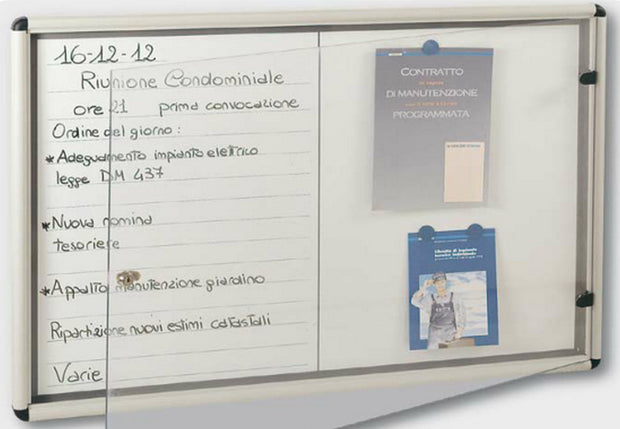 16-12-12
Riunione Condominiale
ore 21 prima convocazione
Ordine del giorno:
*Adeguamento impianto elettrico
legge DM 437
*Nuova nomina
tesoriere
*Appalto manutenzione giardino
Ripartizione nuovi estimi catastali
Varie
CONTRATTO
DI MANUTENZIONE
PROGRAMMATA
Libretto di impianto
termico individuale